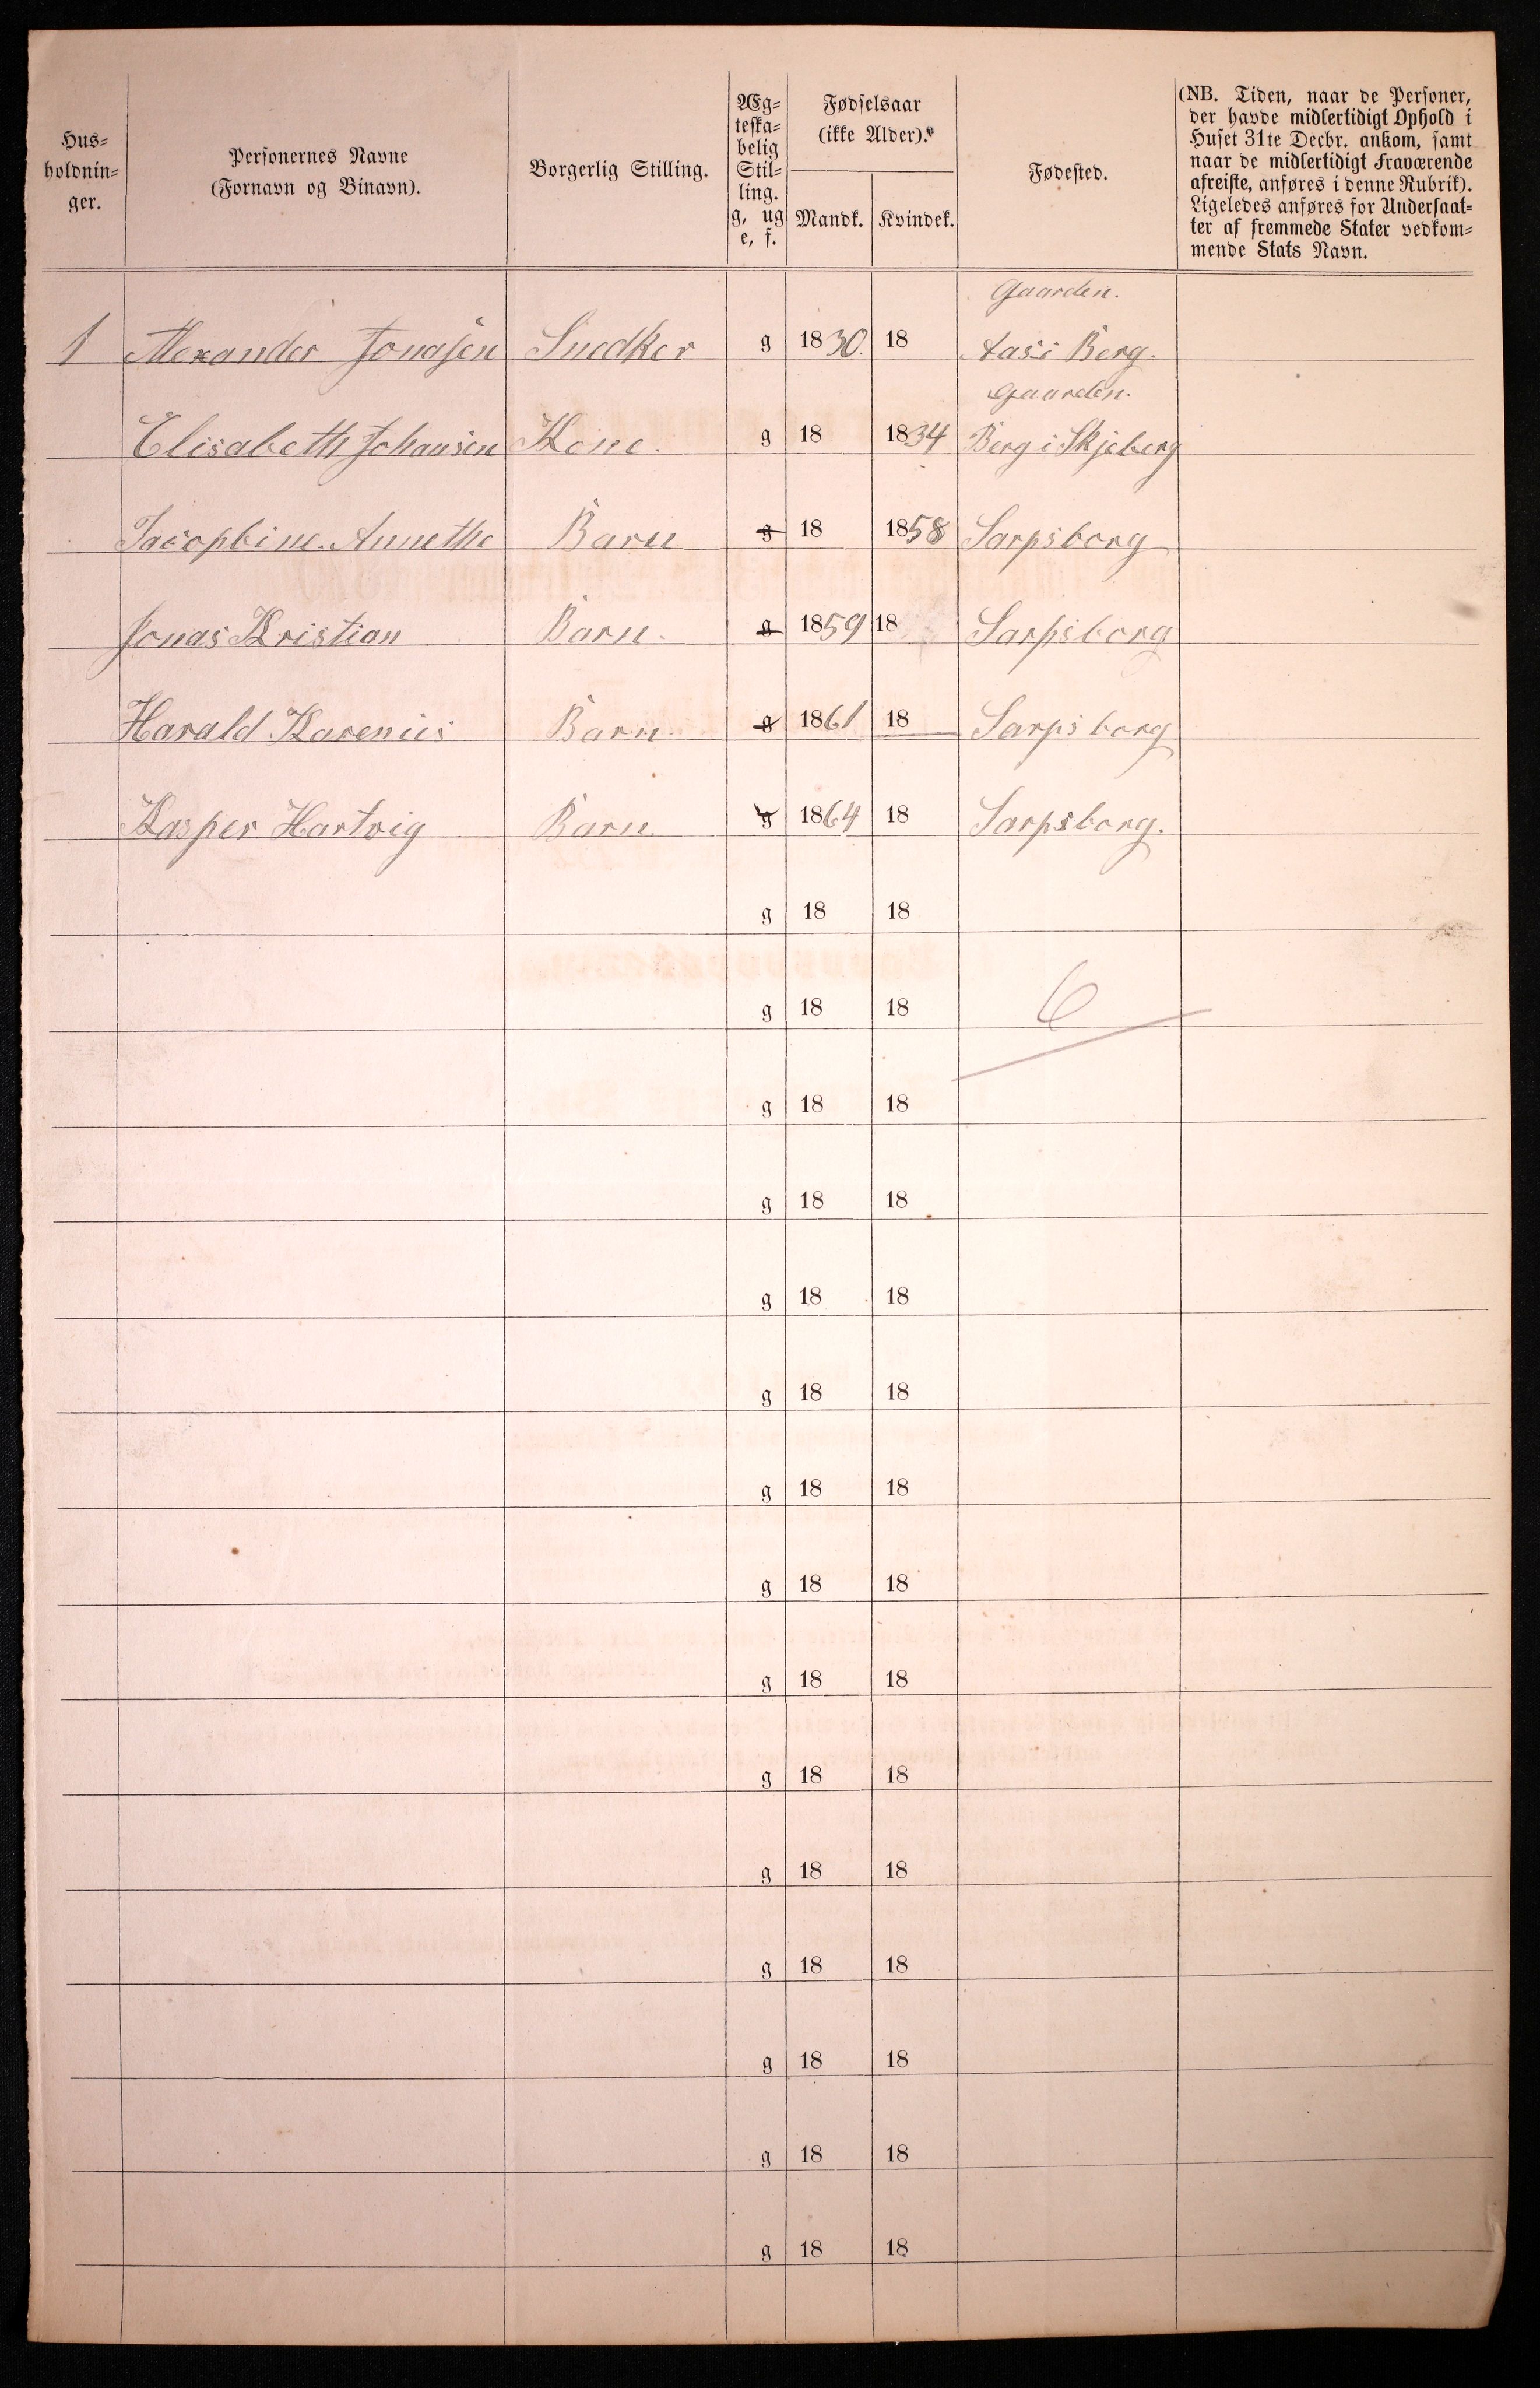 Hus=
holdnin=
ger.
Personernes Navne
(Fornavn og Binavn).
Borgerlig Stilling.
Æg=
teska=
belig
Stil=
ling.
g, ug
e, f.
Fødselsaar
(ikke Alder).*
Mandk. Kvindek.
Fødested.
(NB. Tiden, naar de Personer,
der havde midlertidigt Ophold i
Huset 31te Decbr. ankom, samt
naar de midlertidigt Fraværende
afreiste, anføres i denne Rubrik).
Ligeledes anføres for Undersaat=
ter af fremmede Stater vedkom=
mende Stats Navn.
Gaarden.
1 Alexander Jonasen Snedker g 1830. 18 Aas i Berg.
Gaarden.
Elisabeth Johansen Kone. g 18 1834 Berg i Skjeberg
Annethe Barn g 18 1858 Sarpsborg
Jonas Kristian Barn. g 1859 18 Sarpsborg
Harald Karenius Barn g 1861 18 Sarpsborg
Kasper Hartvig Barn g 1864 18 Sarpsborg.
g 18 18
g 18 18 6
g 18 18
g 18 18
g 18 18
g 18 18
g 18 18
g 18 18
g 18 18
g 18 18
g 18 18
g 18 18
g 18 18
g 18 18
g 18 18